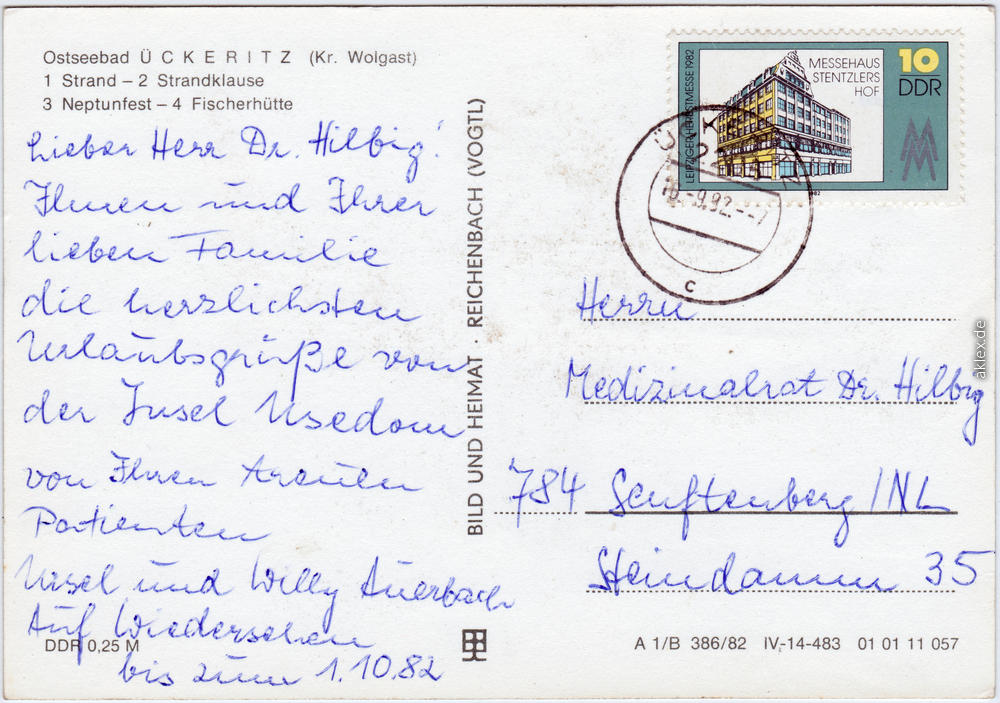 Ostseebad ÜCKERITZ (Kr. Wolgast)
1 Strand – 2 Strandklause
3 Neptunfest – 4 Fischerhütte
Lieber Herr Dr. Hilbig!
Ihnen und Ihrer
lieben Familie
die herzlichsten
Urlaubsgrüße von
der Insel Usedom
von Ihren
Patienten
Ursel und Willy Auerbach
Auf Wiedersehen
bis zum 1.10.82
DDR 0,25 M
BILD UND HEIMAT · REICHENBACH (VOGTL)
LEIPZIGER HERBSTMESSE 1982
MESSEHAUS
STENTZLERS
HOF
10
DDR
MM
9.82.--7
c
Herrn
Medizinalrat Dr. Hilbig
784 Senftenberg /NL
Steindamm 35
A 1/B 386/82 IV-14-483 01 01 11 057
aklex.de